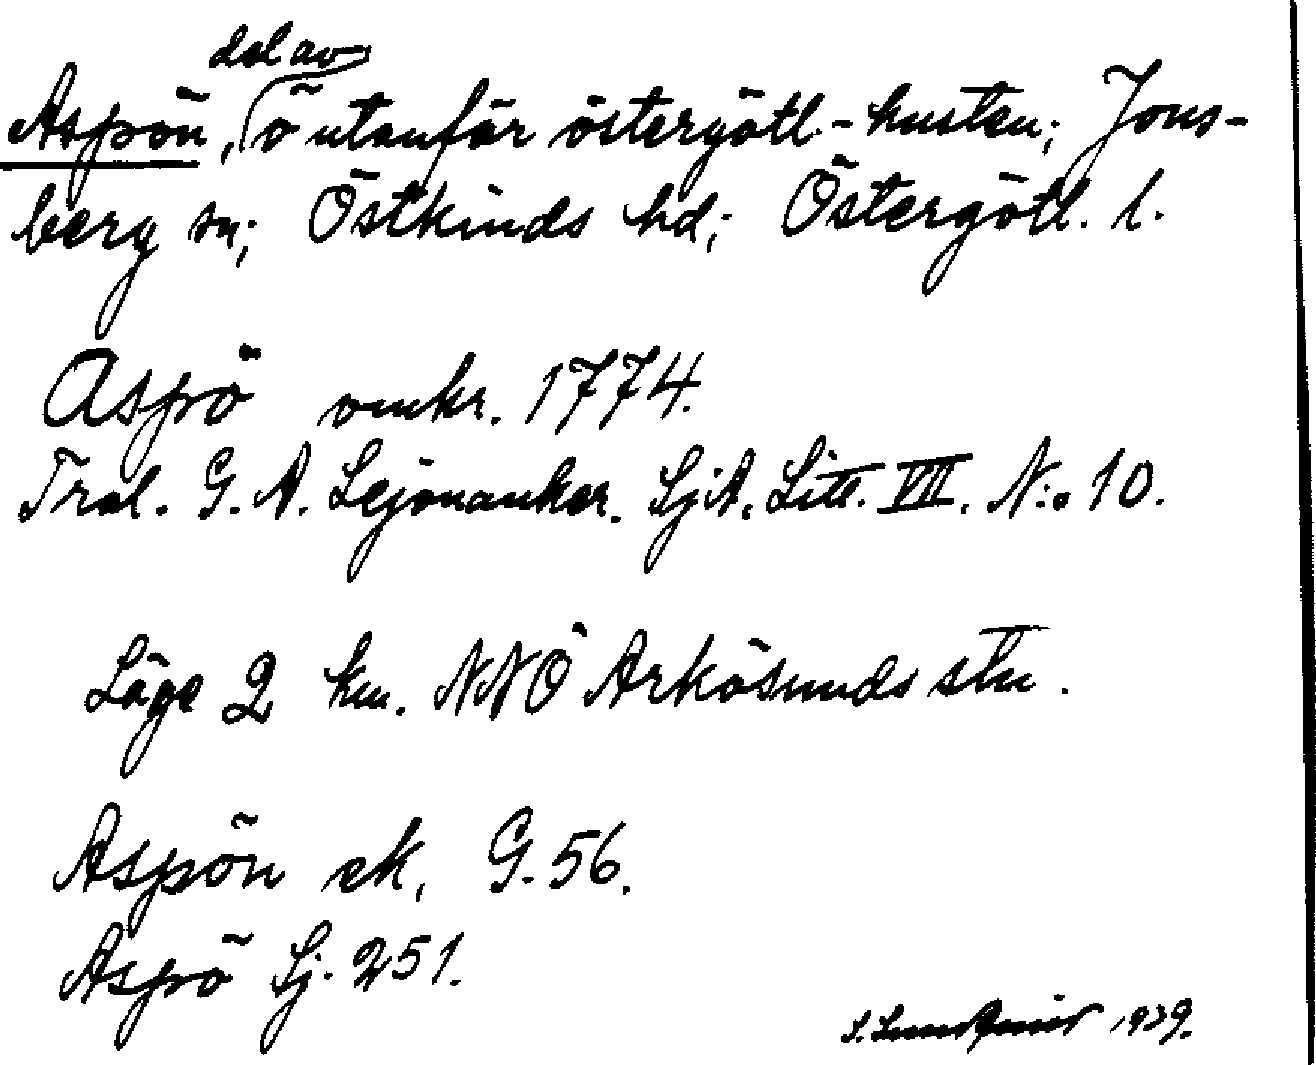 del av
Aspön, ö utanför östergötl.-kusten; Jons-
berg sn; Östkinds hd; Östergötl. l.
Aspö omkr. 1774.
Trol. G. A. Lejonanker. SjA. Litt. VII. N:o 10.
Läge 2 km. NNO Arkösunds stn.
Aspön ek. G. 56.
Aspö Sj. 251.
S. 1939.